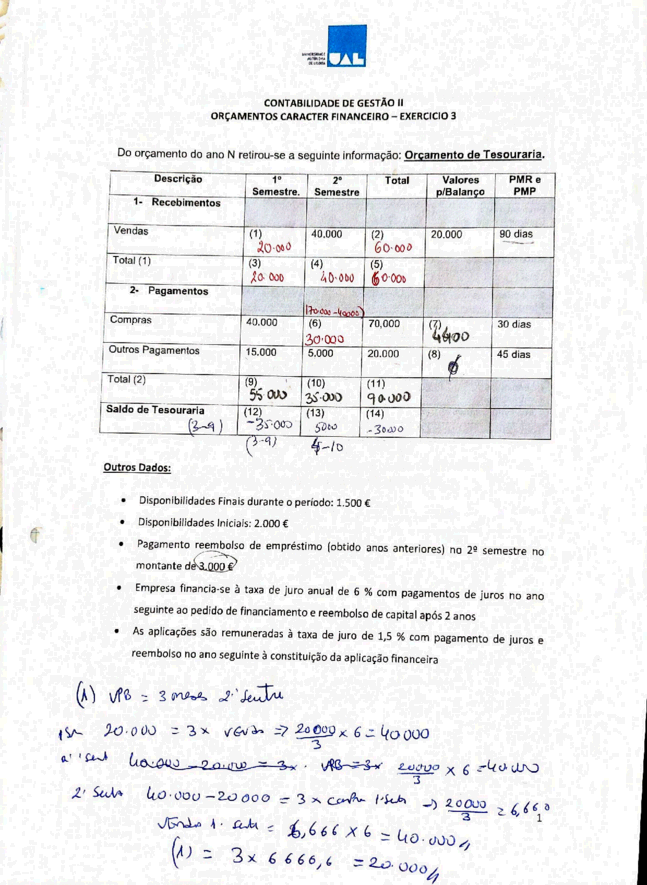 UNIVERSIDADE
AUTÓNOMA
DE LISBOA
UAL
CONTABILIDADE DE GESTÃO II
ORÇAMENTOS CARACTER FINANCEIRO – EXERCICIO 3
Do orçamento do ano N retirou-se a seguinte informação: Orçamento de Tesouraria.
Descrição 1º Semestre. 2º Semestre Total Valores p/Balanço PMR e PMP
1- Recebimentos
Vendas (1) 20.000 40.000 (2) 60.000 20.000 90 dias
Total (1) (3) 20.000 (4) 40.000 (5) 60.000
2- Pagamentos
(70.000-40000)
Compras 40.000 (6) 30.000 70,000 (7) 30 dias
Outros Pagamentos 15.000 5.000 20.000 (8) 45 dias
Total (2) (9) 55.000 (10) 35.000 (11) 90.000
Saldo de Tesouraria (3-9) (12) -35.000 (13) 5000 (14) -30000
(3-9) 4-10
Outros Dados:
• Disponibilidades Finais durante o período: 1.500 €
• Disponibilidades Iniciais: 2.000 €
• Pagamento reembolso de empréstimo (obtido anos anteriores) no 2º semestre no
montante de 3.000 €
• Empresa financia-se à taxa de juro anual de 6 % com pagamentos de juros no ano
seguinte ao pedido de financiamento e reembolso de capital após 2 anos
• As aplicações são remuneradas à taxa de juro de 1,5 % com pagamento de juros e
reembolso no ano seguinte à constituição da aplicação financeira
(1) VPB = 3 meses 2º
20.000 = 3 x => 20000/3 x 6 = 40000
40.000 - 20.000 = 3x VPB = 3x 20000/3 x 6 = 40000
2º 40.000 - 20000 = 3 x 1º -> 20000/3 = 6,66
1º = 6,666 x 6 = 40.000
(1) = 3 x 6666,6 = 20.000